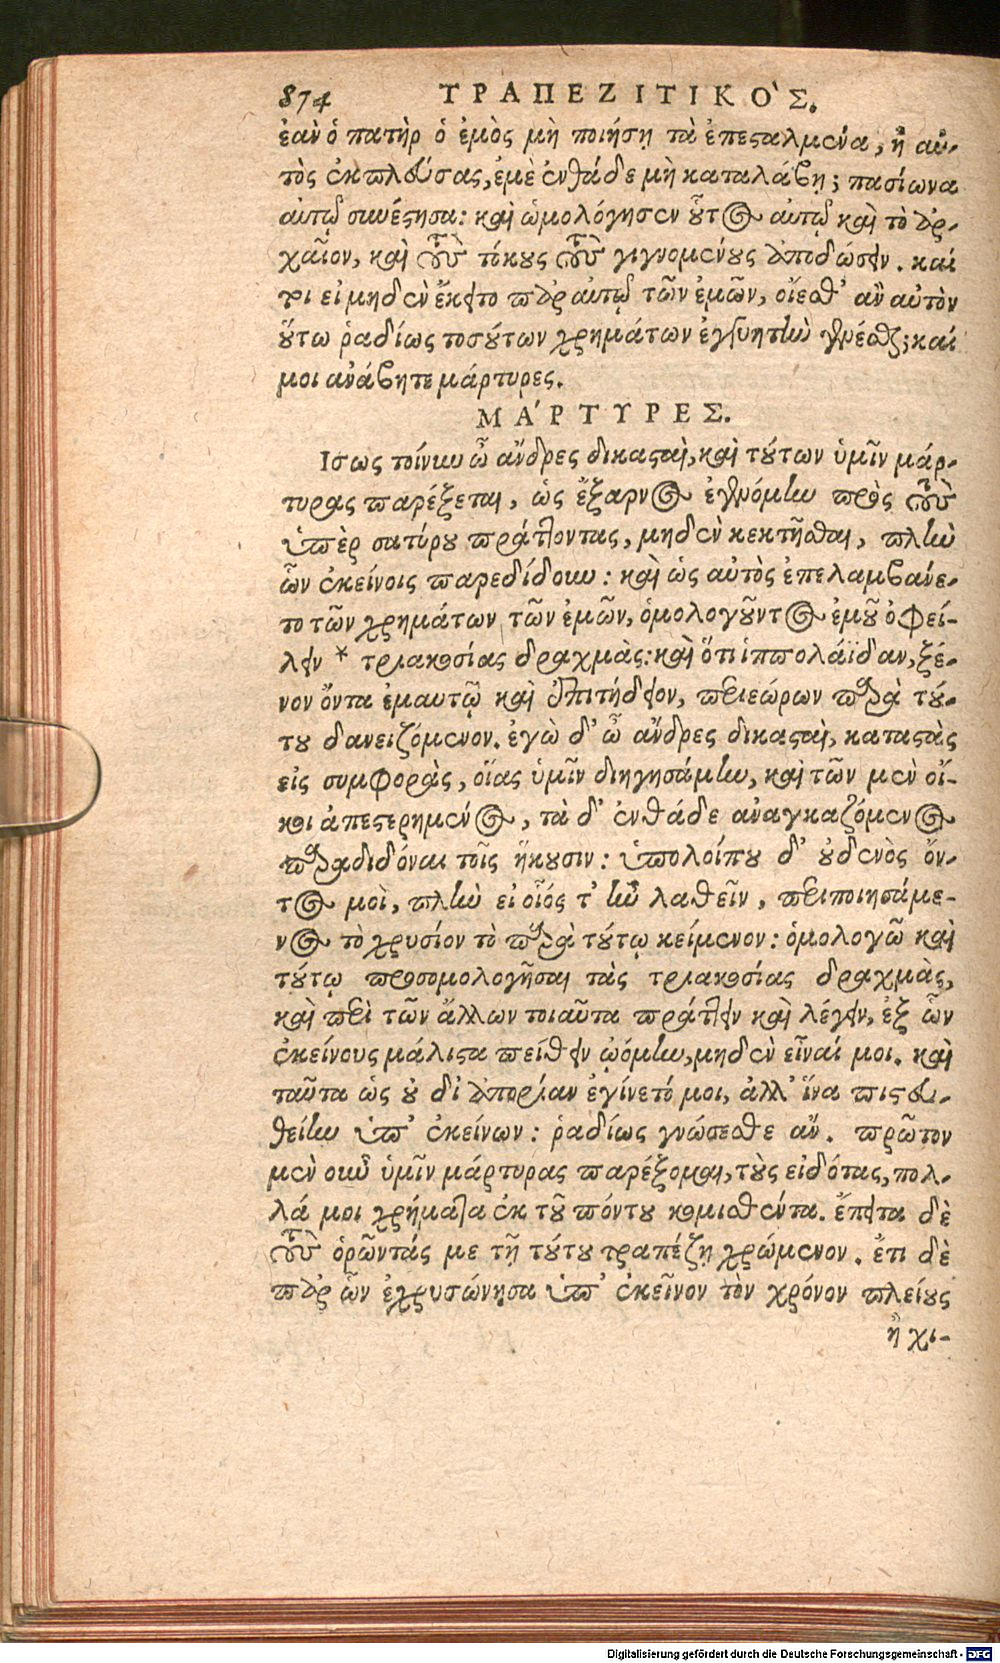 874 ΤΡΑΠΕΖΙΤΙΚΟ`Σ.
ἐὰν ὁ πατὴρ ὁ ἐμὸς μὴ ποιήσῃ τὰ ἐπεςαλμένα, ἢ αὐ-
τὸς ἐκπλεύσας, ἐμὲ ἐνθάδε μὴ καταλάβῃ; πασίωνα
αὐτῷ συνέςησα: καὶ ὡμολόγησεν οὗτος αὐτῷ καὶ τὸ ἀρ-
χαῖον, καὶ τοὺς τόκους τοὺς γιγνομένους ἀποδώσειν. καί
τοι εἰ μηδὲν ἔκειτο παρ' αὐτῷ τῶν ἐμῶν, οἴεσθ' ἂν αὐτὸν
οὕτω ῥαδίως τοσούτων χρημάτων ἐγγυητὴν γενέσθαι; καί
μοι ἀνάβητε μάρτυρες.
ΜΑ´ΡΤΥΡΕΣ.
Ισως τοίνυν ὦ ἄνδρες δικαςαὶ, καὶ τούτων ὑμῖν μάρ-
τυρας παρέξεται, ὡς ἔξαρνος ἐγενόμην πρὸς τοὺς
ὑπὲρ σατύρου πράττοντας, μηδὲν κεκτῆσθαι, πλὴν
ὧν ἐκείνοις παρεδίδουν: καὶ ὡς αὐτὸς ἐπελαμβάνε-
το τῶν χρημάτων τῶν ἐμῶν, ὁμολογοῦντος ἐμοῦ ὀφεί-
λειν * τριακοσίας δραχμὰς: καὶ ὅτι ἱππολάϊδαν, ξέ-
νον ὄντα ἐμαυτῷ καὶ ἐπιτήδειον, περιεώρων παρὰ τού-
του δανειζόμενον. ἐγὼ δ' ὦ ἄνδρες δικαςαὶ, καταςὰς
εἰς συμφορὰς, οἵας ὑμῖν διηγησάμην, καὶ τῶν μὲν οἴ-
κοι ἀπεςερημένος, τὰ δ' ἐνθάδε ἀναγκαζόμενος
παραδιδόναι τοῖς ἥκουσιν: ὑπολοίπου δ' οὐδενὸς ὄν-
τος μοὶ, πλὴν εἰ οἷός τ' ἦν λαθεῖν, περιποιησάμε-
νος τὸ χρυσίον τὸ παρὰ τούτῳ κείμενον: ὁμολογῶ καὶ
τούτῳ προσομολογῆσαι τὰς τριακοσίας δραχμὰς,
καὶ περὶ τῶν ἄλλων τοιαῦτα πράττειν καὶ λέγειν, ἐξ ὧν
ἐκείνους μάλιςα πείθειν ᾠόμην, μηδὲν εἶναί μοι. καὶ
ταῦτα ὡς οὐ δι' ἀπορίαν ἐγίνετό μοι, ἀλλ' ἵνα πιςευ-
θείην ὑπ' ἐκείνων: ῥαδίως γνώσεσθε ἄν. πρῶτον
μὲν οὖν ὑμῖν μάρτυρας παρέξομαι, τοὺς εἰδότας, πολ-
λά μοι χρήματα ἐκ τοῦ πόντου κομισθέντα. ἔπειτα δὲ
τοὺς ὁρῶντάς με τῇ τούτου τραπέζῃ χρώμενον. ἔτι δὲ
παρ' ὧν ἐχρυσώνησα ὑπ' ἐκεῖνον τὸν χρόνον πλείους
ἢ χι-
Digitalisierung gefördert durch die Deutsche Forschungsgemeinschaft - DFG